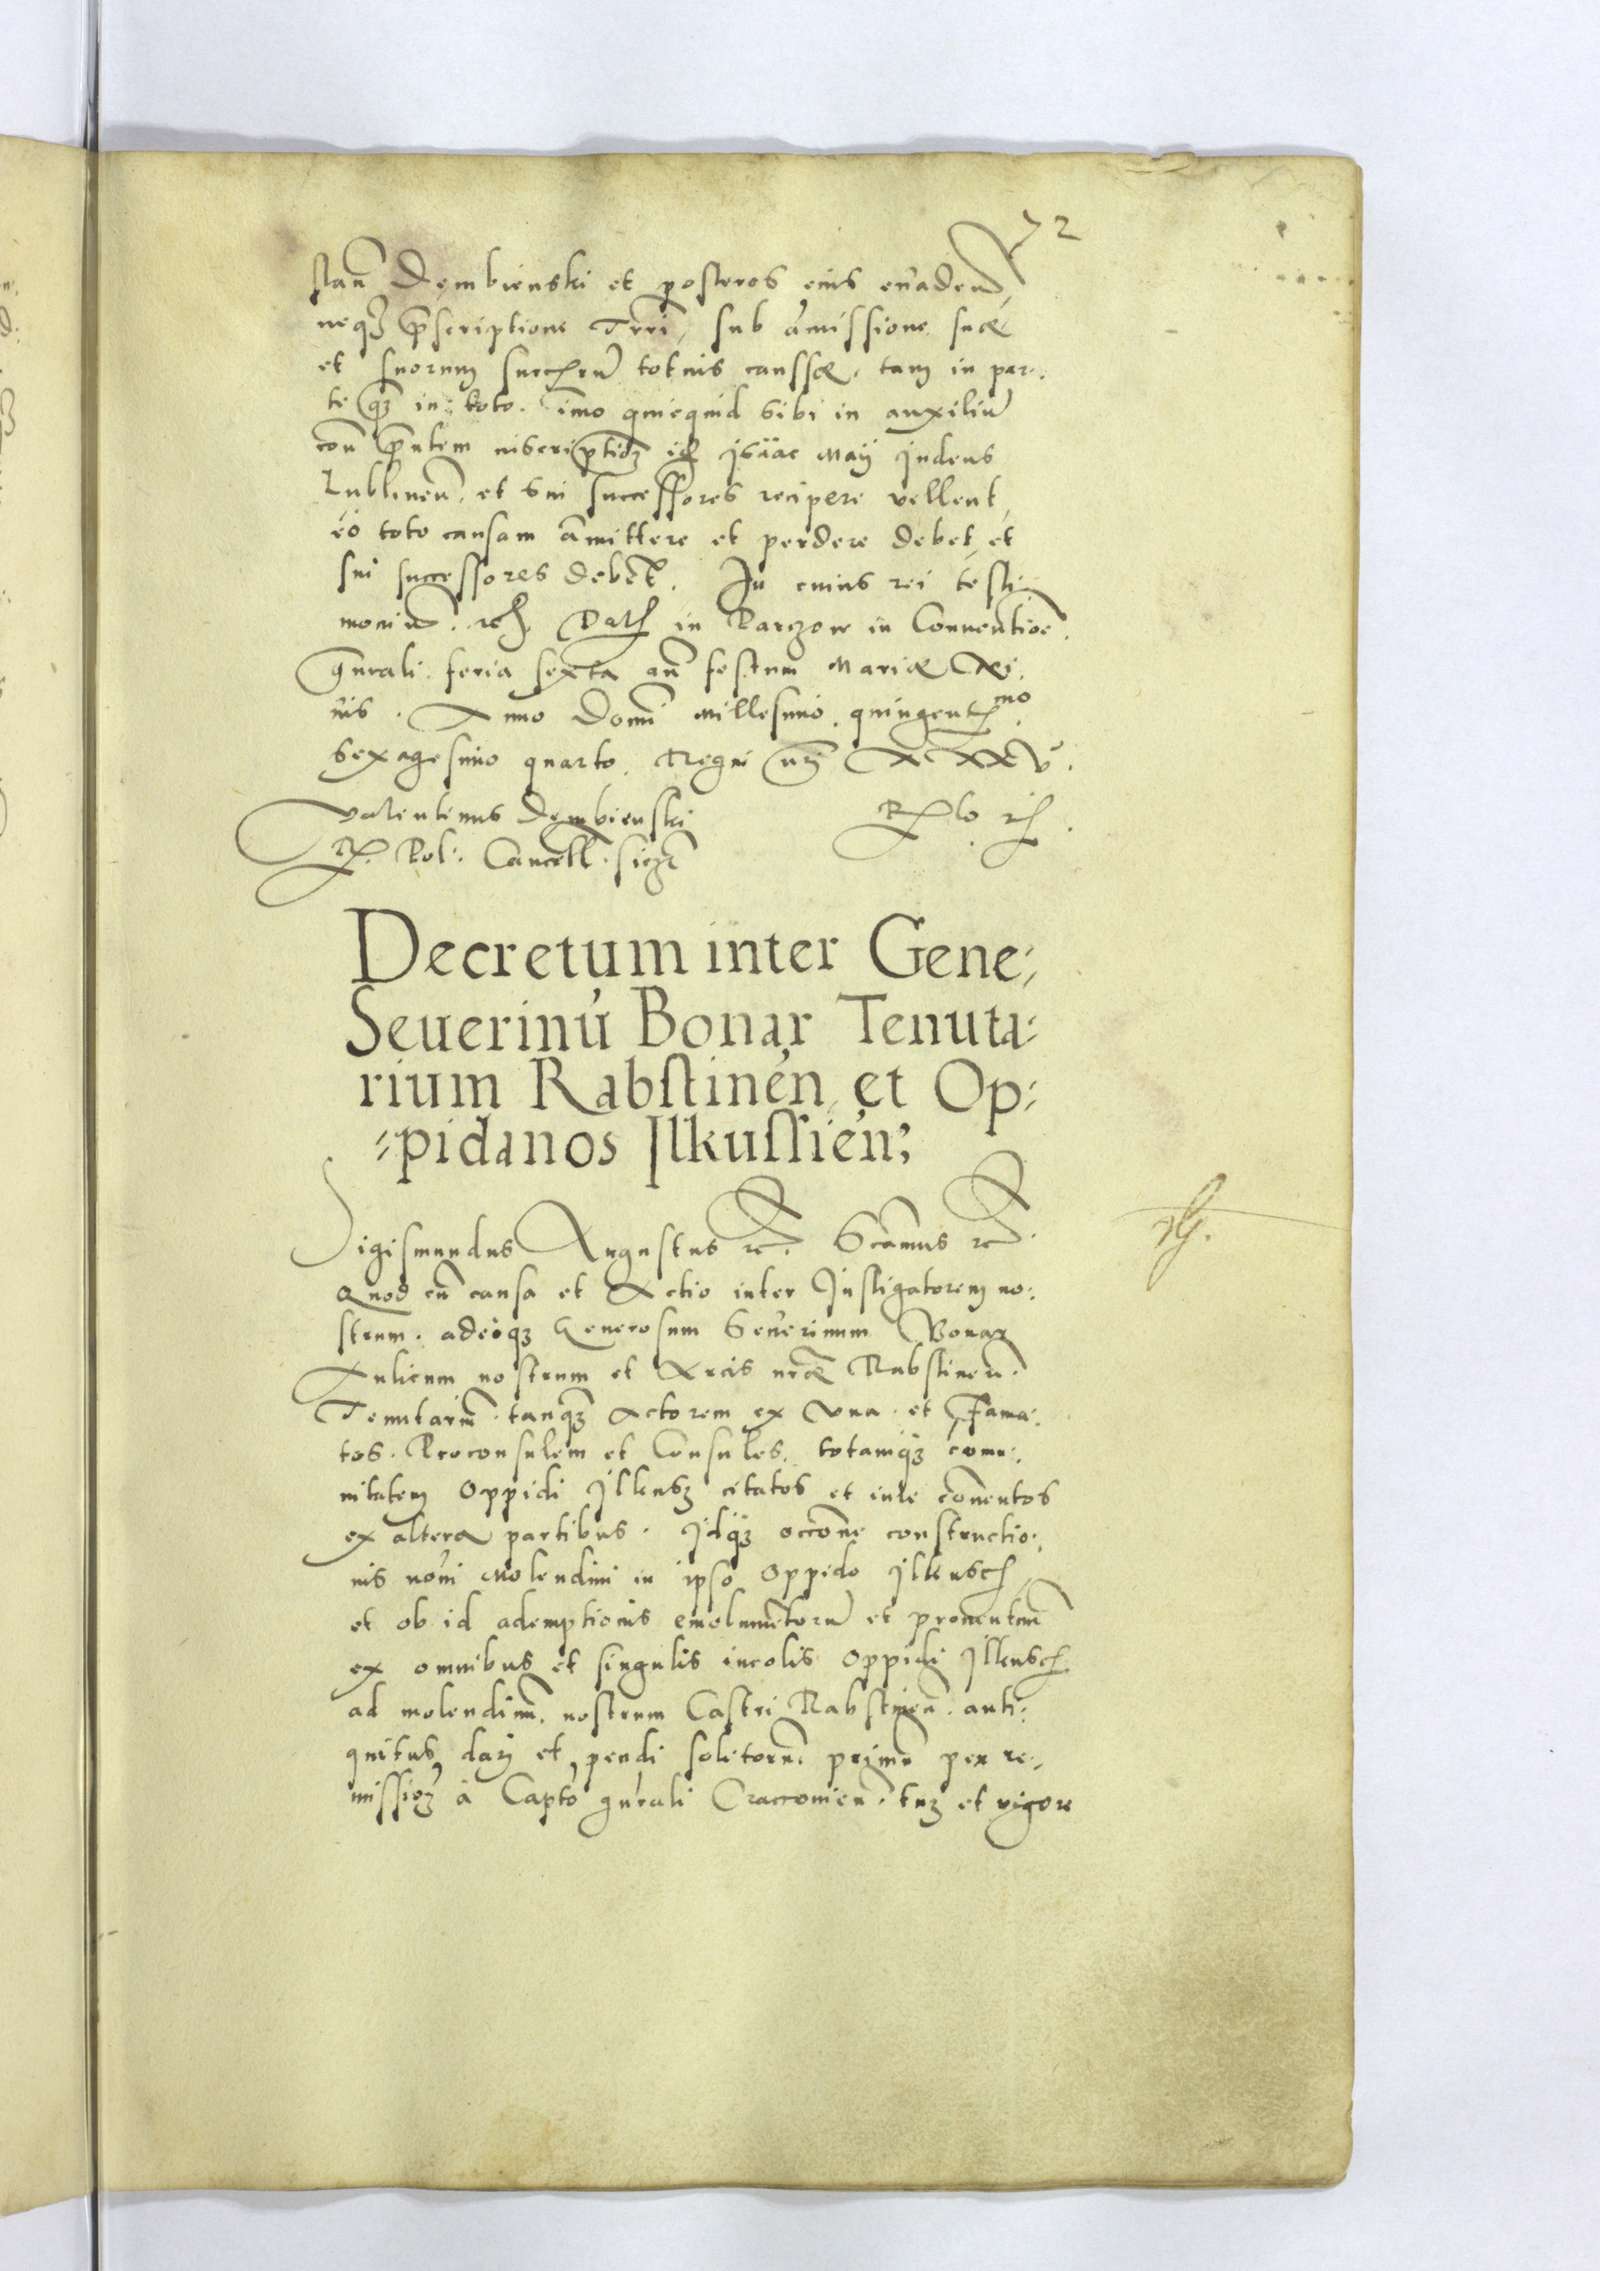 72
stañ Dembienski et posteros eius euaden
neqȝ pscriptione Trri, sub amissione suæ
et suorum succeru totius caussæ. tam in par:
te qȝ in toto. imo quicquid sibi in auxiliũ
coñ pntem niscriptioȝ id Isaac Maij Iudeus
Lublineñ. et sui successores recipere vellent,
eo toto causam amittere et perdere debet, et
sui successores debet. In cuius rei testi
moniũ. rc. Dat in Parczow in Conuentioe
Gnrali. feria sexta añ festum Mariæ
nis. Anno Domi Millesimo quingentmo
Sexagesimo quarto. Regni nri XXXV.
Valentinus Dembienski
R. Pol. Cancell.
Decretum inter Gene:
Seuerinũ Bonar Tenuta:
rium Rabstineñ et Op:
=pidanos Ilkussieñ;
Sigismundus Augustus rc. Scamus rc.
Quod cũ causa et Actio inter Instigatorem no:
strum. adeoqȝ Generosum Seuerinum Bonar
Aulicum nostrum et Arcis nræ Rabstineñ.
Tenutariũ. tanqȝ Actorem ex vna. et Fama:
tos. Proconsulem et Consules. totamqȝ comu:
nitatem Oppidi Ilkusȝ citatos et iure conuentos
ex altera partibus. Idqȝ occone constructio:
nis noui Molendini in ipso Oppido Ilkusch,
et ob id ademptionis emolumetorũ et prouentuũ
ex omnibus et singulis incolis Oppidi Ilkusch
ad molendinũ. nostrum Castri Rabstineñ. anti:
quitus, dari et, pendi solitorũ. primũ per re:
missioȝ à Capto gnrali Cracouieñ. tuȝ et vigore